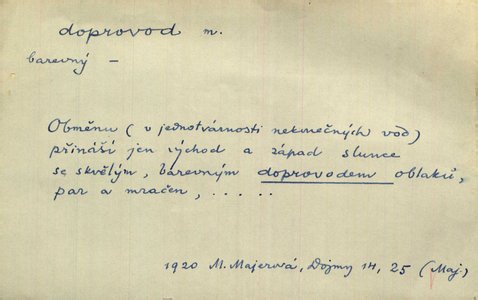 doprovod m.
barevný –
Obměnu (v jednotvárnosti nekonečných vod)
přináší jen východ a západ slunce
se skvělým, barevným doprovodem oblaků,
par a mračen, . . . . .
1920 M. Majerová, Dojmy 14, 25 (Maj.)